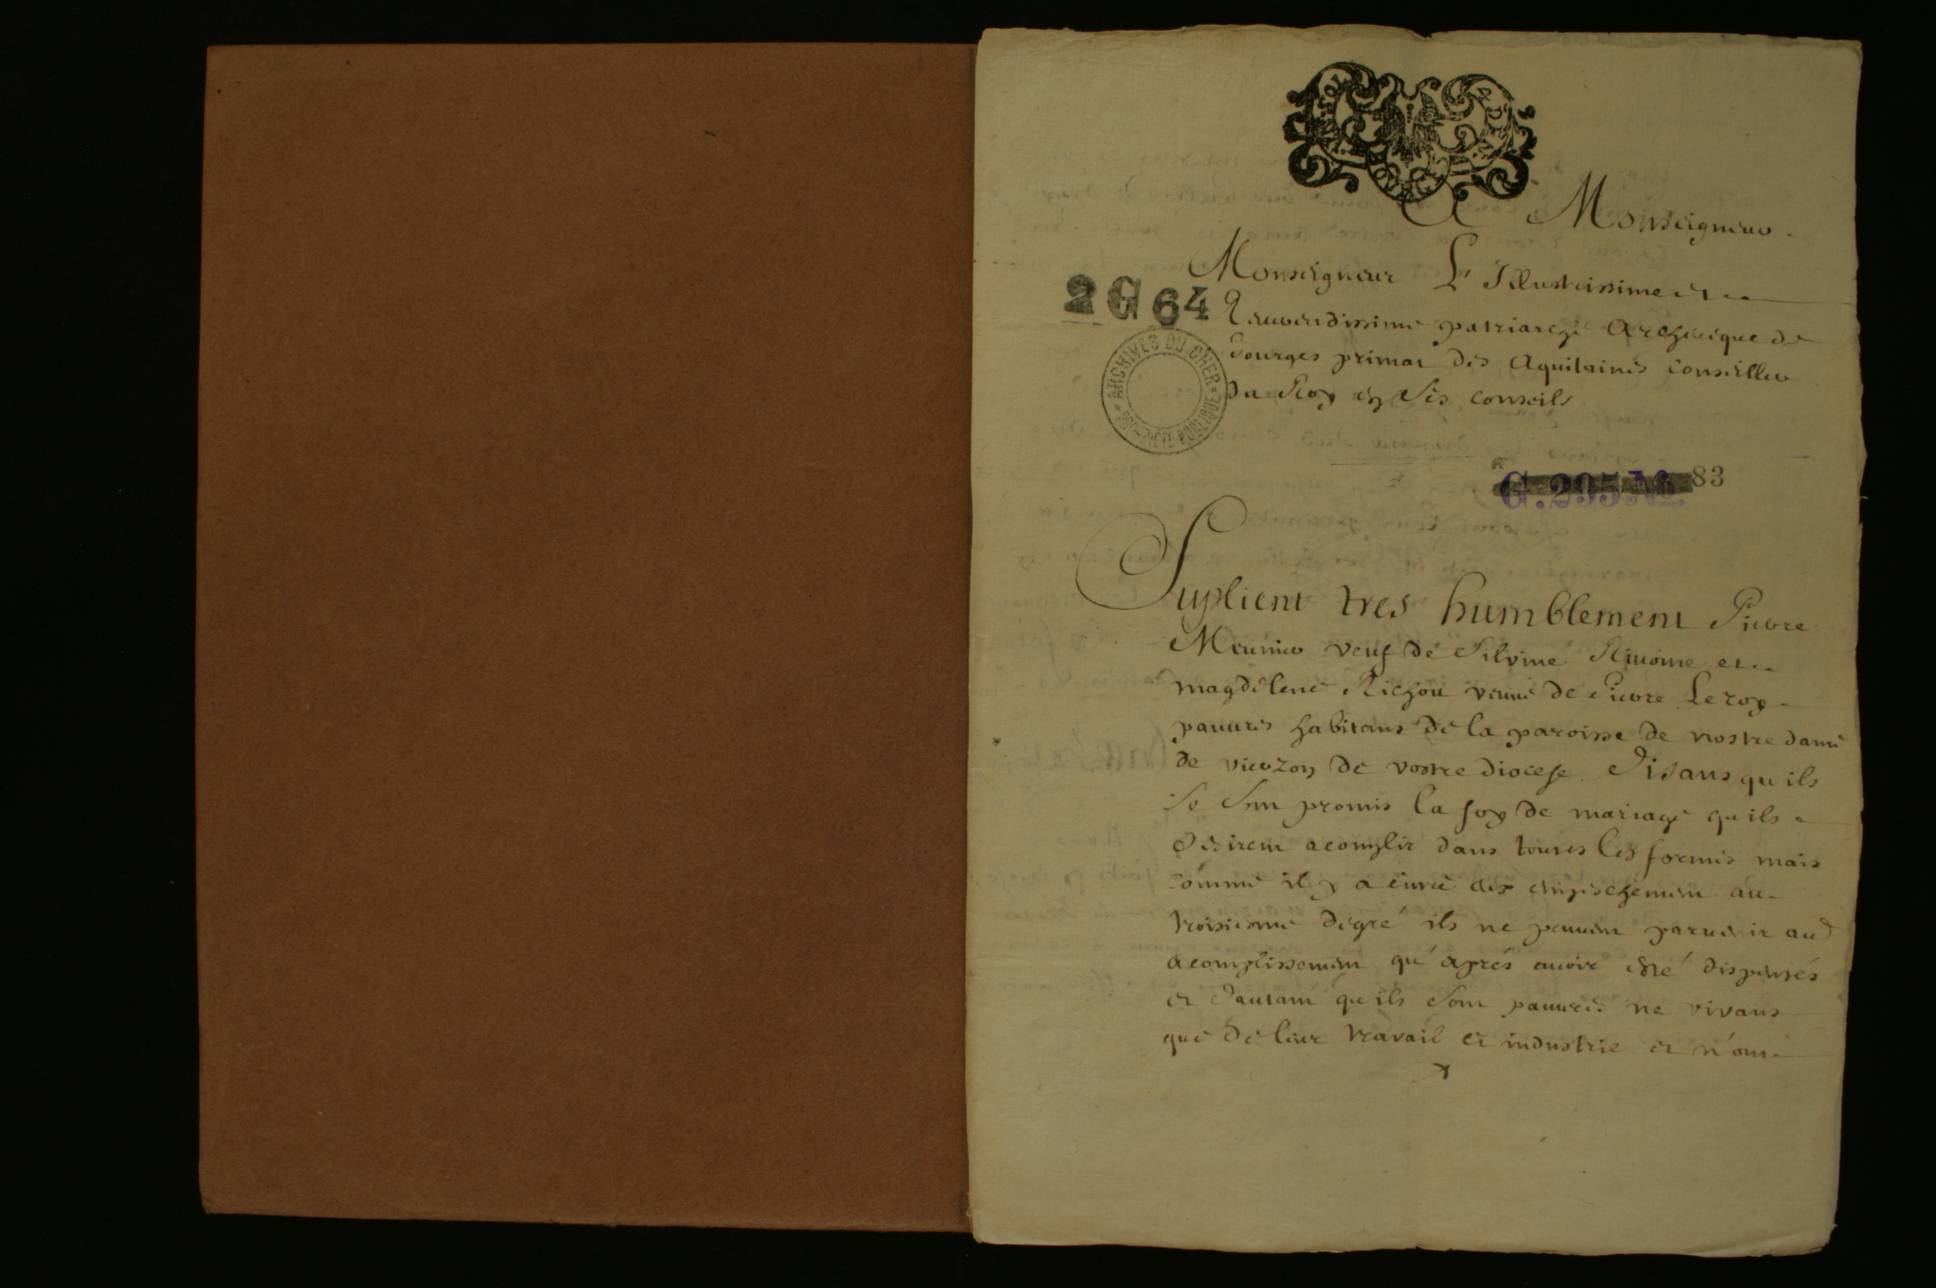 A Monseigneur
Monseigneur L'Illustrissime et
2 G 64
Reuerendissime patriarche Archeuique de
Bourges primat des Aquitaines Conseiller
du Roy en ses conseils
ARCHIVES DU CHER
PROPRIÉTÉ PUBLIQUE
G. 295 No. 83
Suplient tres humblement Pierre
Meunier veuf de Silvine et
magdelene Richou veuue de Pierre Leroy
pauures habitans de la paroisse de nostre dame
de vierzon de vostre diocese Disans qu ils
se sont promis la foy de mariage qu ils
desirent acomplir dans toutes les formes mais
comme il y a entre eux empeschement au
troisiesme degré ils ne peuuent paruenir aud
acomplissement qu'aprés auoir esté dispensés
et d'autant qu ils sont pauures ne vivans
que de leur travail et industrie et n'ont